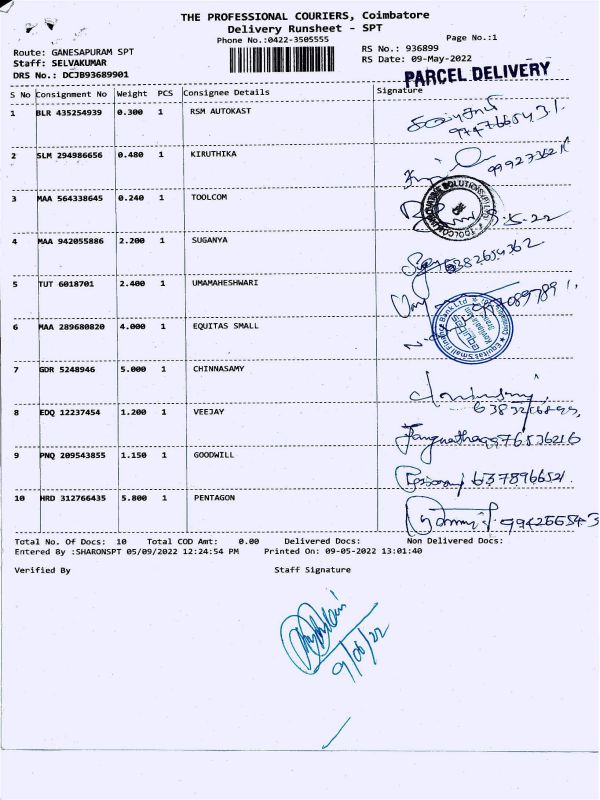 THE PROFESSIONAL COURIERS, Coimbatore
Delivery Runsheet - SPT
Phone No.:0422-3505555
Page No.:1
Route: GANESAPURAM SPT
RS No.: 936899
Staff: SELVAKUMAR
RS Date: 09-May-2022
DRS No.: DCJB93689901
PARCEL DELIVERY
S No Consignment No Weight PCS Consignee Details Signature
1 BLR 435254939 0.300 1 RSM AUTOKAST
2 SLM 294986656 0.480 1 KIRUTHIKA
3 MAA 564338645 0.240 1 TOOLCOM
4 MAA 942055886 2.200 1 SUGANYA
6382654362
5 TUT 6018701 2.400 1 UMAMAHESHWARI
6 MAA 289680820 4.000 1 EQUITAS SMALL
Equitas Small Finance Bank Ltd
7 GDR 5248946 5.000 1 CHINNASAMY
8 EDQ 12237454 1.200 1 VEEJAY
9 PNQ 209543855 1.150 1 GOODWILL
6378966521
10 HRD 312766435 5.800 1 PENTAGON
9942665543
Total No. Of Docs: 10 Total COD Amt: 0.00 Delivered Docs: Non Delivered Docs:
Entered By :SHARONSPT 05/09/2022 12:24:54 PM Printed On: 09-05-2022 13:01:40
Verified By Staff Signature